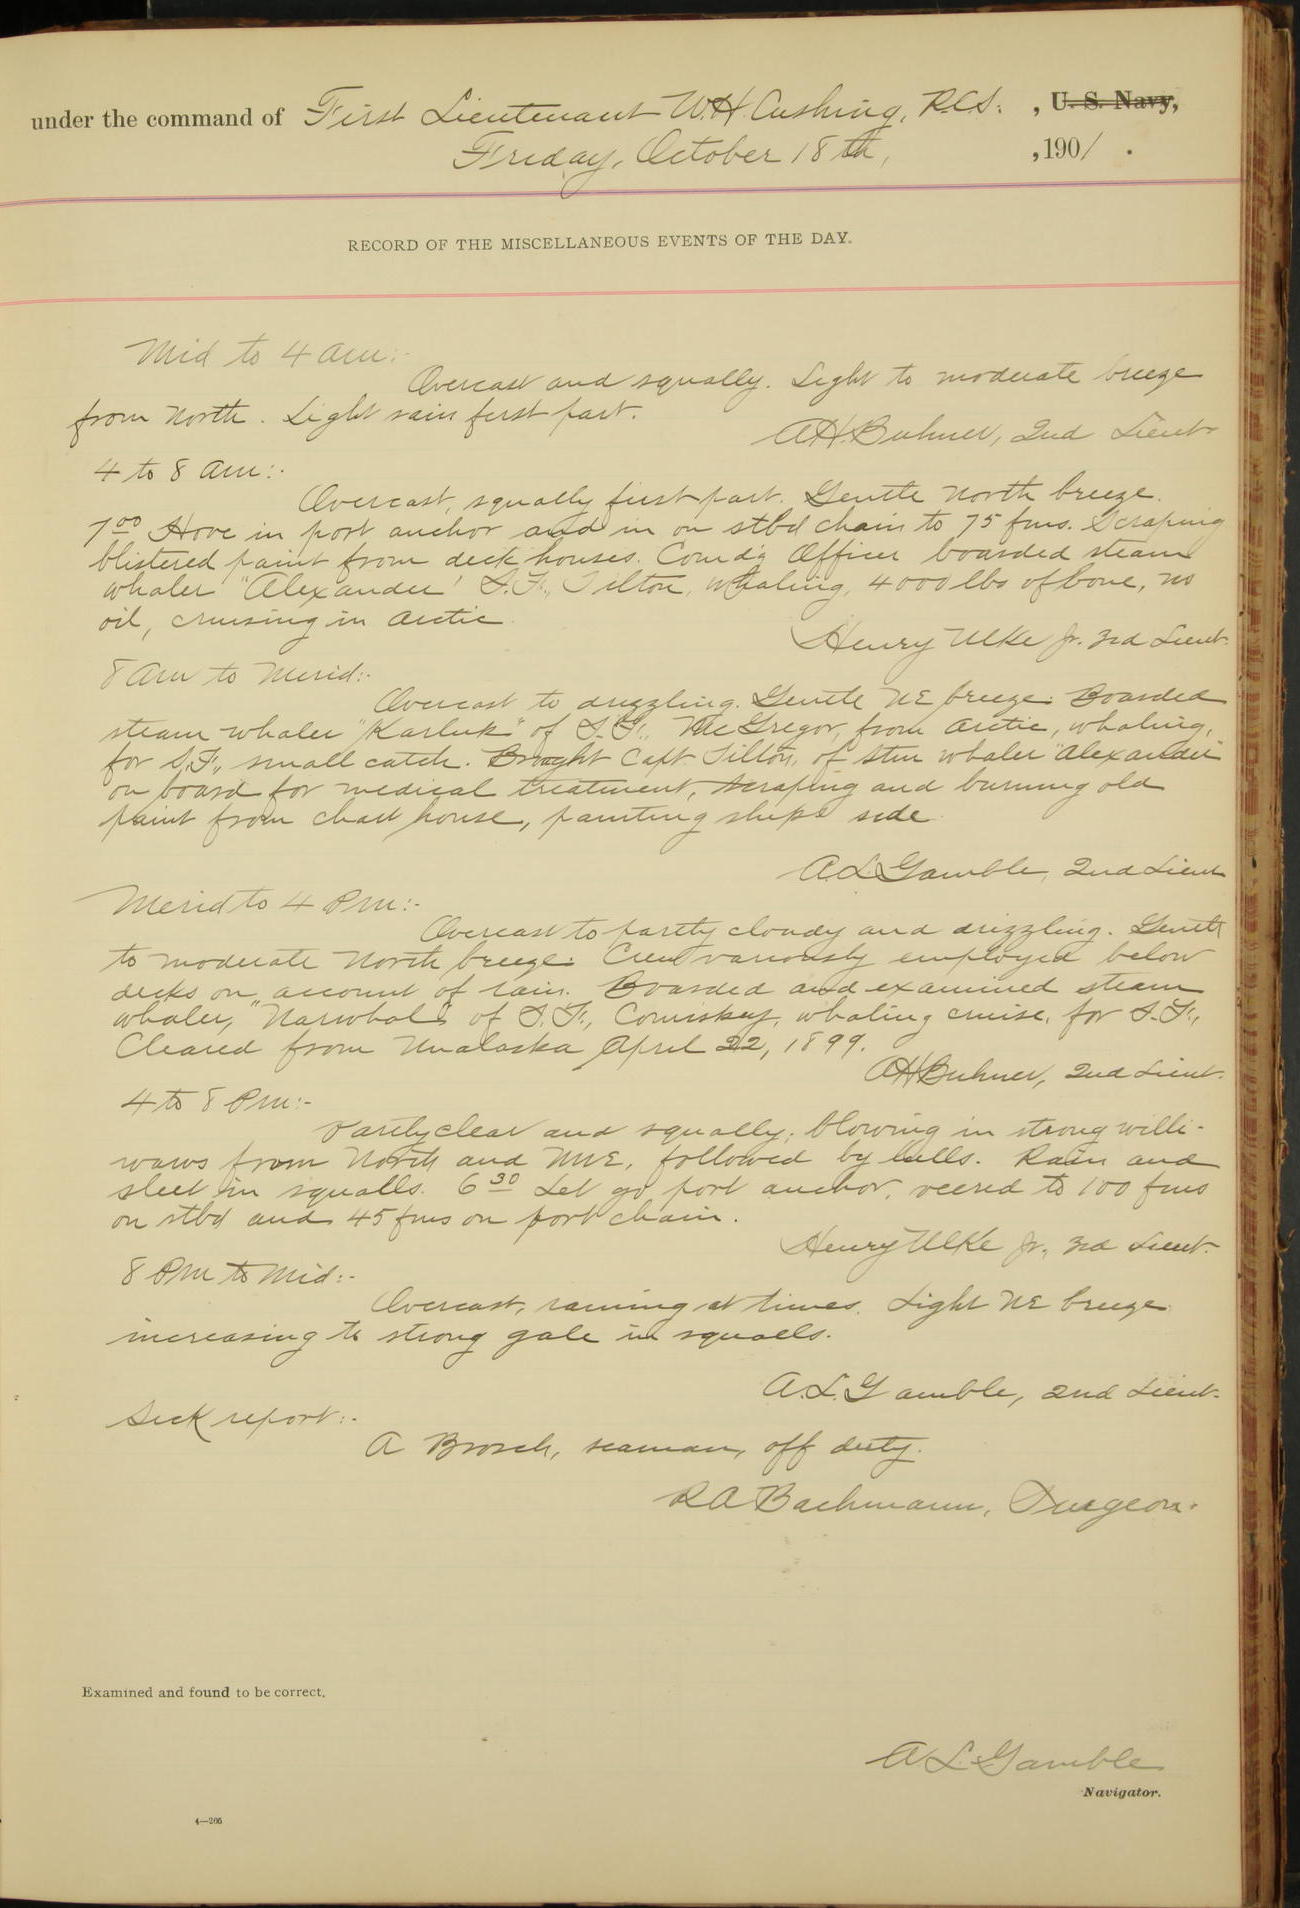 under the command of First Lieutenant W.H. Cushing, R.C.S. , U. S. Navy,
Friday, October 18th, , 1901 .
RECORD OF THE MISCELLANEOUS EVENTS OF THE DAY.
Mid to 4 am:-
Overcast and squally. Light to moderate breeze
from North. Light rain first part.
A.H. Buhner, 2nd Lieut
4 to 8 am:-
Overcast, squally first part. Gentle North breeze.
7 00 Hove in port anchor and in on stbd chain to 75 fms. Scraping
blistered paint from deck houses. Comd'g Officer boarded steam
whaler "Alexander" S.F., Tilton, whaling, 4000 lbs of bone, no
oil, cruising in Arctic
Henry Ulke Jr. 3rd Lieut.
8 am to Merid:-
Overcast to drizzling. Gentle NE breeze. Boarded
steam whaler "Karluk" of S.F., McGregor, from Arctic, whaling,
for S.F., small catch. Brought Capt Tilton, of stm whaler "Alexander"
on board for medical treatment, scraping and burning old
paint from chart house, painting ships side
A.L. Gamble, 2nd Lieut
Merid to 4 Pm:-
Overcast to partly cloudy and drizzling. Gentle
to moderate North breeze. Crew variously employed below
decks on account of rain. Boarded and examined steam
whaler, "Narwhal" of S.F., Comiskey, whaling cruise, for S.F.,
Cleared from Unalaska April 22, 1899.
A.H. Buhner, 2nd Lieut.
4 to 8 Pm:-
Partly clear and squally, blowing in strong willi-
waws from North and NNE, followed by lulls. Rain and
sleet in squalls. 6 30 Let go port anchor, veered to 100 fms
on stbd and 45 fms on port chain.
Henry Ulke Jr., 3rd Lieut.
8 Pm to Mid:-
Overcast, raining at times. Light NE breeze
increasing to strong gale in squalls.
A.L. Gamble, 2nd Lieut.
Sick report:-
A Brosch, seaman, off duty.
R A Bachmann, Surgeon.
Examined and found to be correct.
A. L. Gamble
Navigator.
4—205